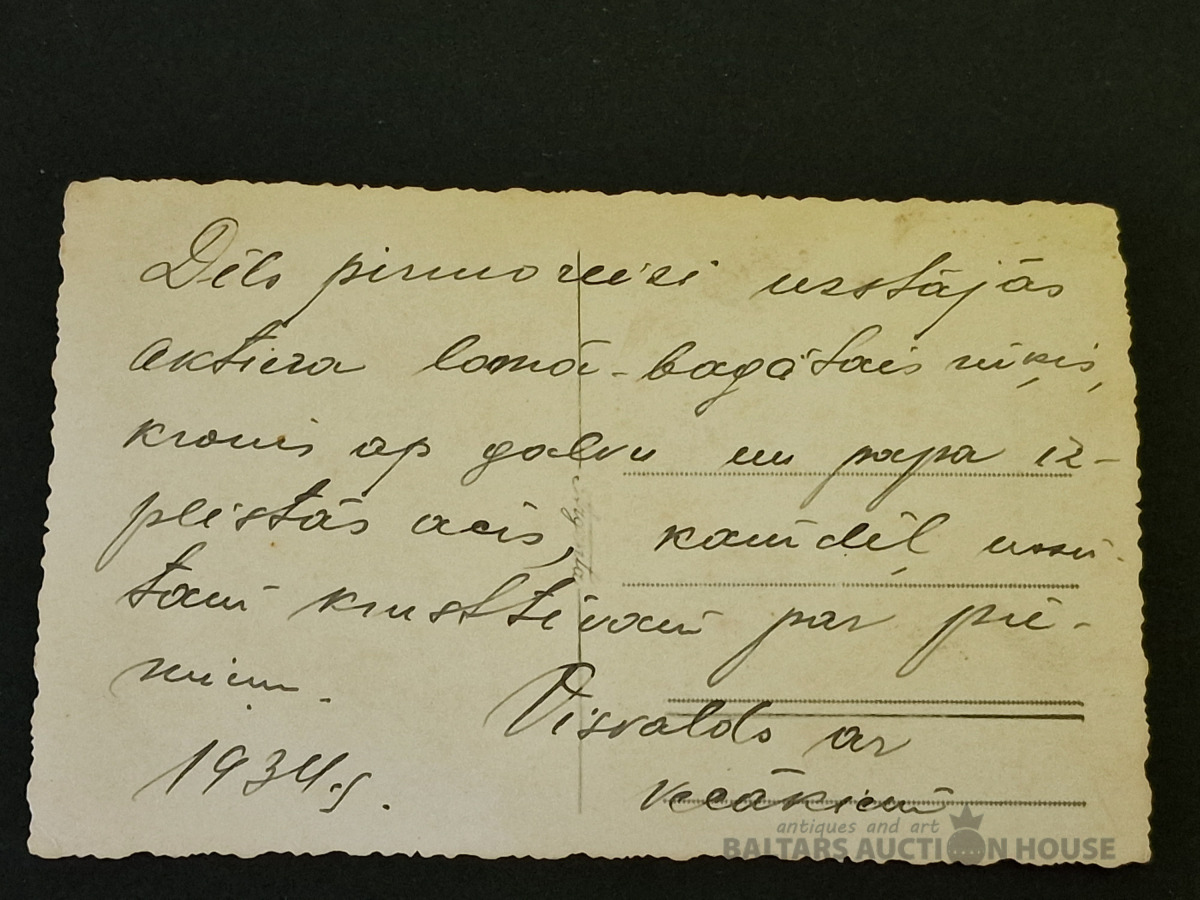 Dēls pirmoreizi uzstājās
aktiera lomā - bagātais
kronis ap galvu un papa iz-
plestās acis, kamdēļ
tam krusttēvam par pie-
miņu.
Visvalds ar
vecākiem
1934.g.
antiques and art
BALTARS AUCTION HOUSE